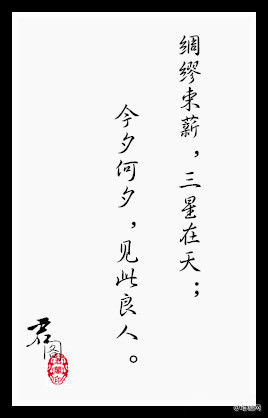 绸缪束薪，三星在天；
今夕何夕，见此良人。
君
图